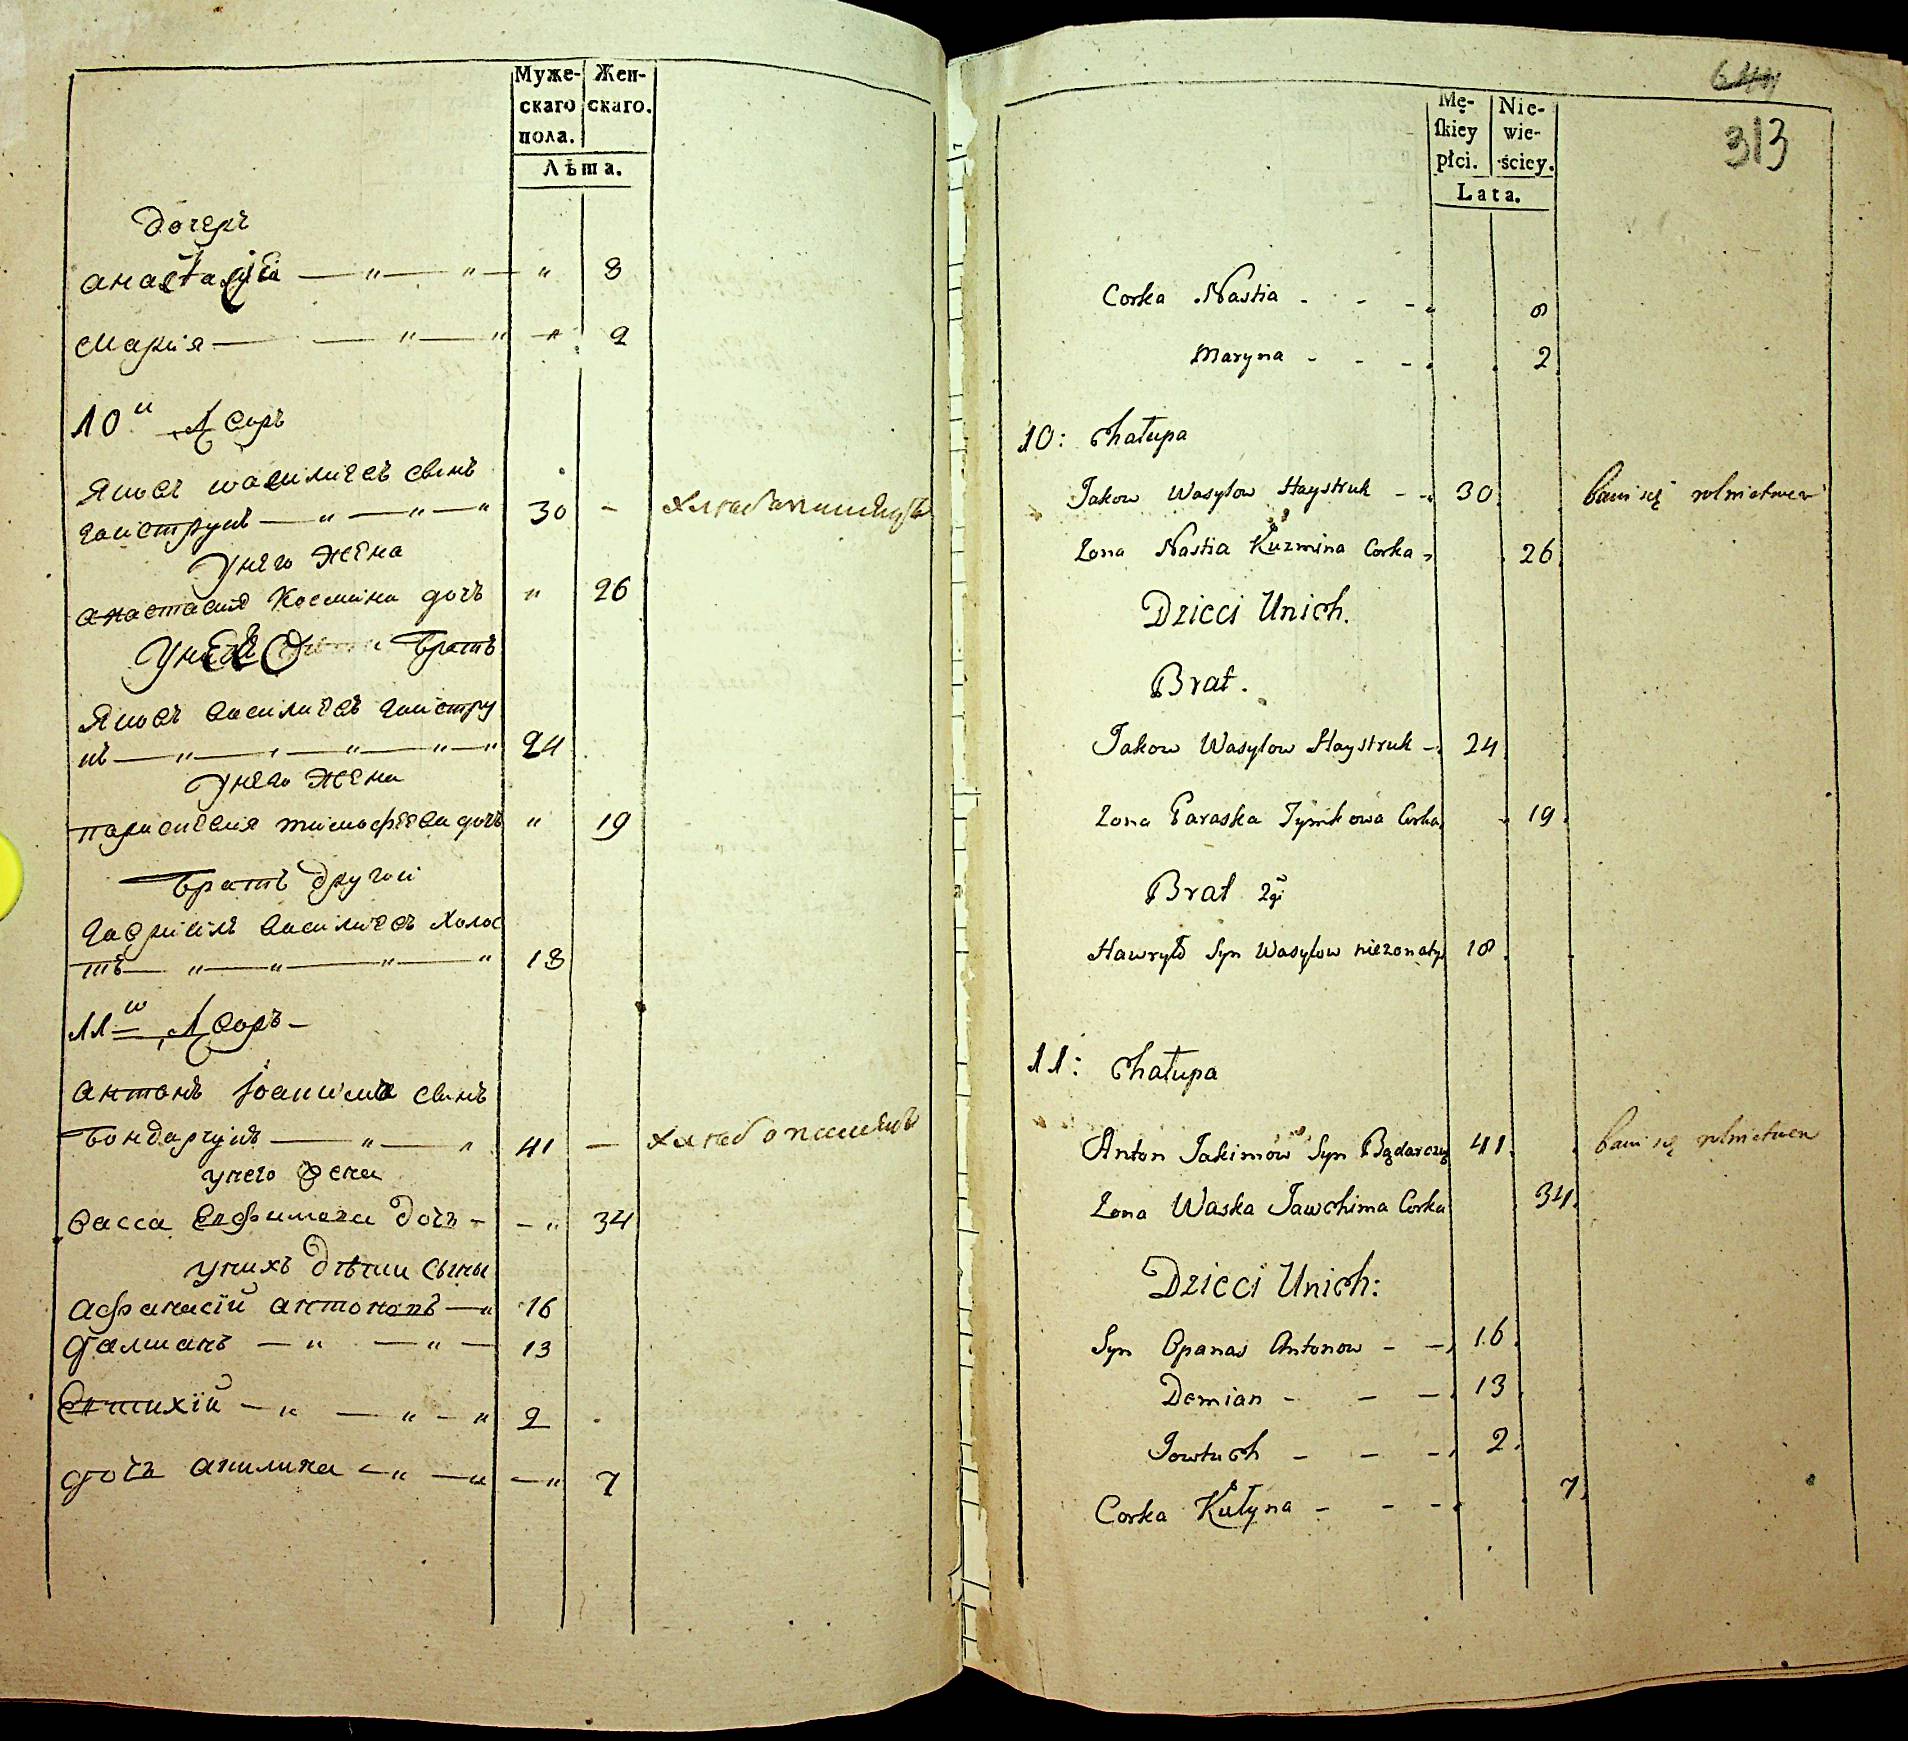 Муже-
скаго
пола.
Жен-
скаго.
Лѣта.
дочерѣ
анастасія — " — " — " 8
Марія — — " — " — " 2
10й Дворъ
Яковъ василіевъ сынъ
гайструкъ — " — " — " 30 - хлѣбопашецъ
у него жена
анастасия Космина дочь " 26
у него братъ
Яковъ василіевъ гайстру
къ — " — " — " — " 24
у него жена
параскевия тимофѣева дочь " 19
братъ другой
гавриилъ василіевъ холос
тъ — " — " — " — " 18
11й Дворъ —
антонъ Іоакима сынъ
бондарчукъ — " — " 41 — хлѣбопашецъ
у него жена
васса евфимова дочь - - " 34
у нихъ дѣти сыны
афанасій антоновъ — " 16
далманъ — " — " — 13
евтихій — " — " — " 2
дочь акилина — " — " — " 7
644
313
Mę-
skiey
płci.
Nie-
wie-
ściey.
Lata.
Corka Nastia - - - 8
Maryna - - - 2
10: Chałupa
Jakow Wasylow Haystruk - - 30 bawi się rolnictwem
Zona Nastia Kuzmina Corka 26
Dzieci Unich.
Brat.
Jakow Wasylow Haystruk - 24
Zona Paraska Tymkowa Corka 19
Brat 2gi
Hawryło Syn Wasylow niezonaty 18
11: Chałupa
Anton Jakimow Syn Bądarczuk 41 bawi się rolnictwem
Zona Waska Jawchima Corka 34
Dzieci Unich:
Syn Opanas Antonow - - 16
Demian - - - 13
Jowtuch - - - 2
Corka Kułyna - - - 7